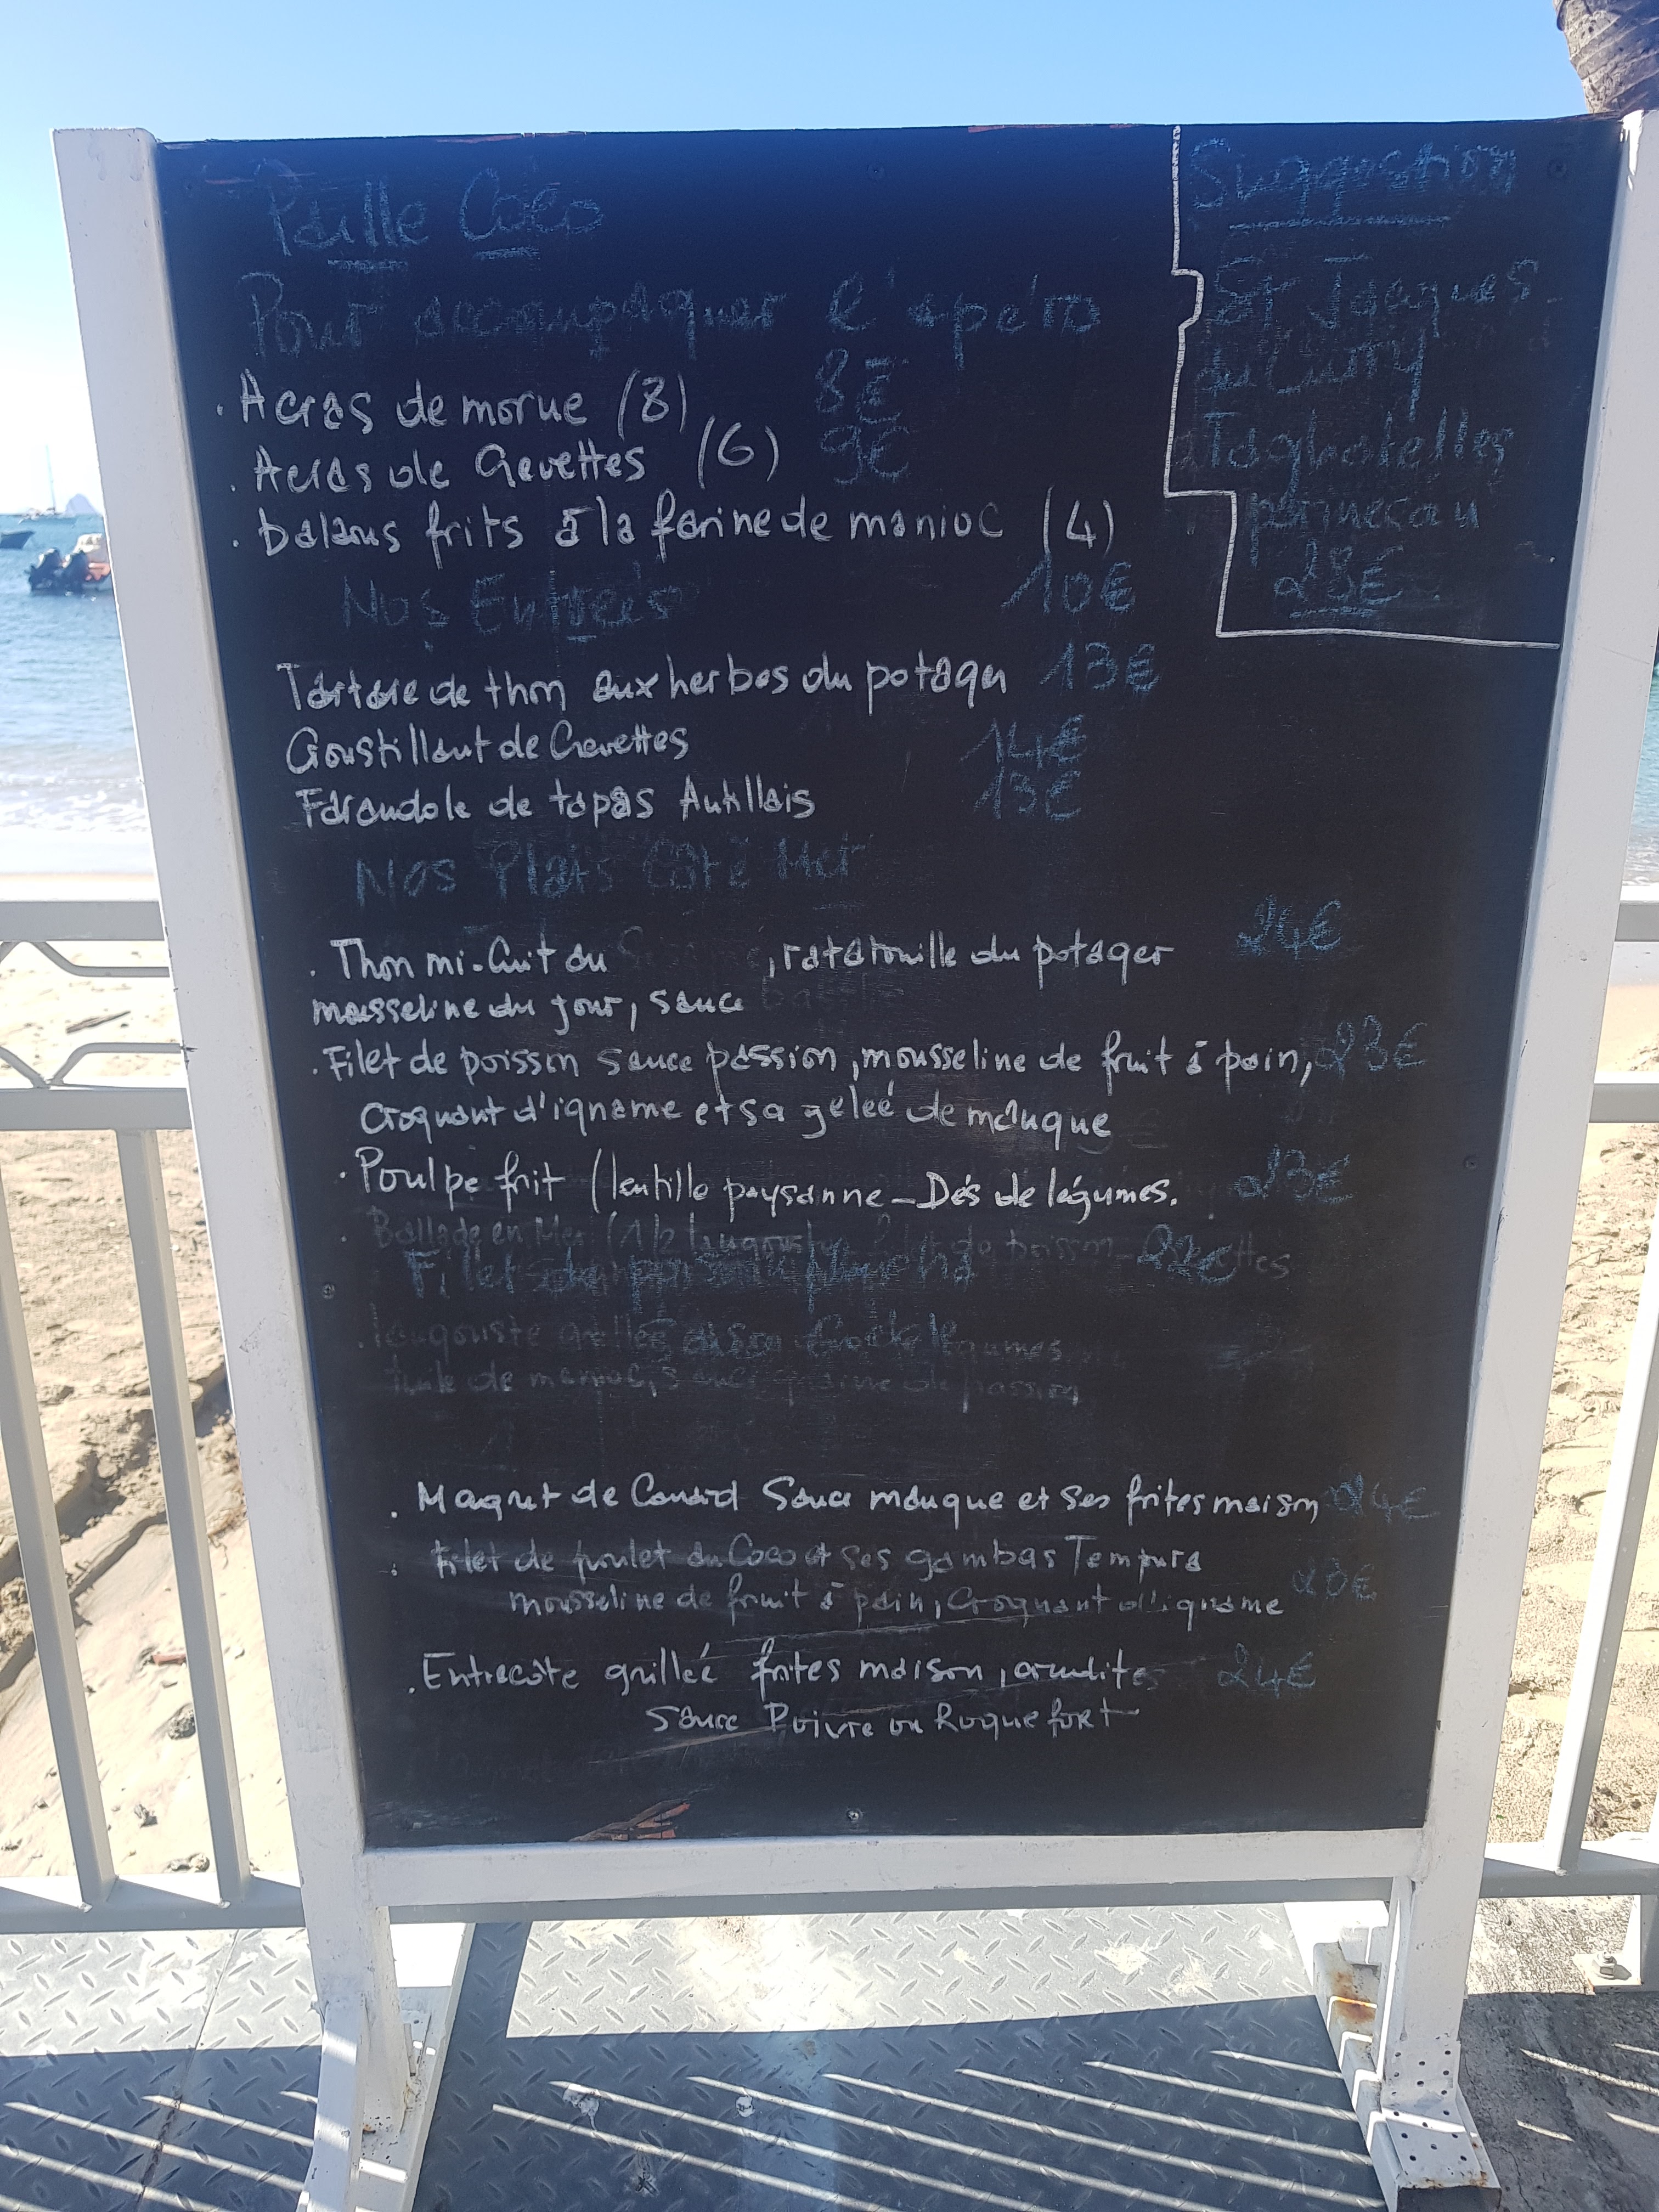 Paille Coco
Pour accompagner l'apéro
. Acras de morue (8) 8€
. Acras de Crevettes (6) 9€
. balaous frits à la farine de manioc (4)
10€
Nos Entrées
Tartare de thon aux herbes du potager 13€
Croustillant de Crevettes 14€
Farandole de tapas Antillais 13€
Nos Plats Côté Mer
. Thon mi-Cuit au , ratatouille du potager 24€
mousseline du jour, sauce
. Filet de poisson sauce passion, mousseline de fruit à pain, 23€
Croquant d'igname et sa geleé de mangue
. Poulpe frit (lentille paysanne - Dés de légumes. 23€
. Ballade en Mer (1/2 langouste de poisson 22€
Filet
. langouste légumes
de passion
. Magret de Canard Sauce mangue et ses frites maison 24€
. Filet de poulet au Coco et ses gambas Tempura
mousseline de fruit à pain, Croquant d'igname 23€
. Entrecôte grilleé frites maison, crudites 24€
Sauce Poivre ou Roquefort
Suggestion
St Jacques
au Curry
Taghatelles
parmesan
23€